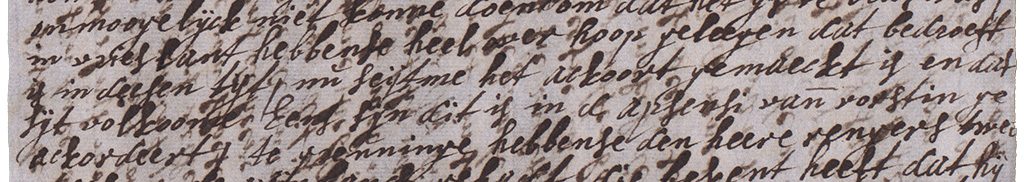 onmoogelijck niet konne doen om dat het
in vrieslant hebbense heel over hoop geleegen dat bedroeft
is in deesen tijt nu seijtme het ackoort gemaeckt is en dat
sijt volkoome eens sijn dit is in d apsensi van vorstin ge
ackordeert te grenninge hebbense den heere rengers twe
bekent heeft dat hij